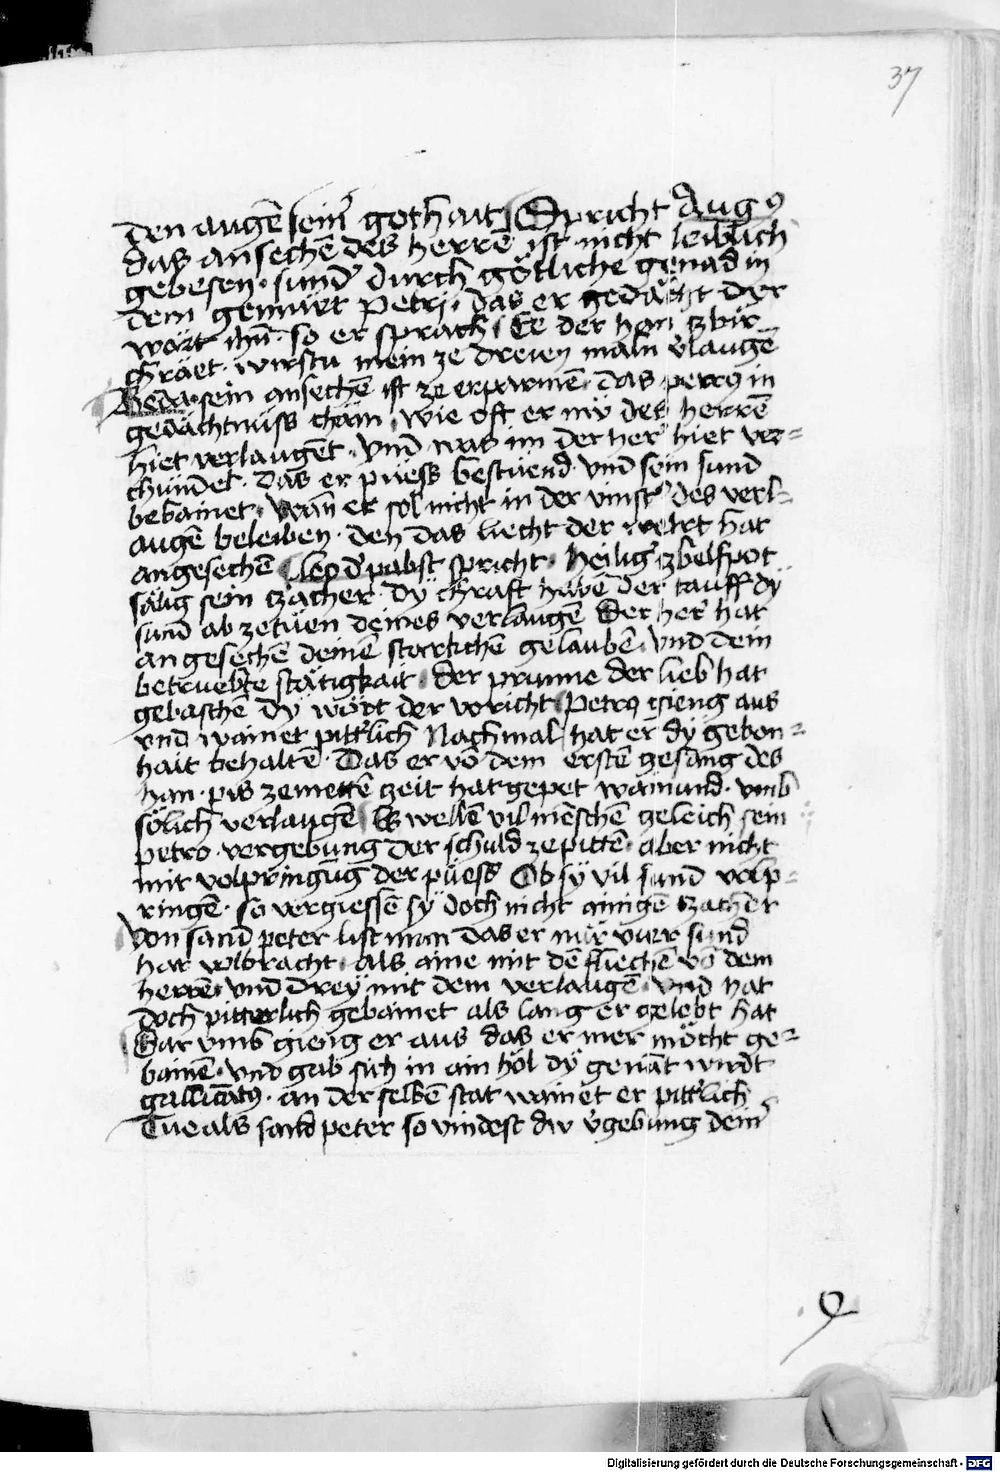 37
den augē seinˀ gothait Spricht Augꝰ
das ansechē des herrē ist nicht leiblich
gebesen · sundˀ durch götliche genad in
dem gemürt Petri · das er gedächt der
wört ihū · so er sprach Ee der han zbir
chräet · wirstu mein ze dreien maln v̄laugē
Beda · sein ansechē ist ze erparmē · das petrꝰ in
gedächtnüss chäm · wie oft er nür des herrē
hiet verlaugēt · vnd was im der herˀ hiet ver-
chündet · das er püess bestüend vnd sein sund
bebainet · Wan̄ er sol nicht in der vinstˀ des verl-
augē beleiben · den das liecht der welt hat
angesechē Leo dˀ pabst spricht · heiligˀ zbelfpot
sälig sein zäher · dÿ chraft habē der tauff dÿ
sund ab zetüen deines verlaugē Der herˀ hat
angesechē deinē starkchē gelaubē · vnd dein
betruebte stätigkait · der prunne der lieb hat
gebaschē dÿ wört der voricht Petrꝰ gieng aus
vnd wainet pittˀlich Nachmal hat er dÿ gebon-
hait behaltē · Das er vō dem erstē gesang des
han · pis zemettē zeit hat gepet wainund · vmb
sölich verlaugē Es wellē vil mēschē geleich sein
petro · vergebung der schuld ze pittē · aber nicht
mit volpringūg der püess Ob sÿ vil sund volp-
ringē · so vergiessē sÿ doch nicht ainigē zacher
Von sand peter list man das er nür vier sund
hat volbracht · als aine mit dē fliechē vō dem
herrē · vnd dreÿ mit dem verlaugē · vnd hat
doch pitterlich gebainet als lang er gelebt hat
Dar vmb gieng er aus das er mer möcht ge-
bainē · vnd gab sich in ain höl dÿ genāt wirdt
gallicātꝰ · an der selbē stat wainet er pittˀlich
Tue als sand peter so vindest dw v̄gebung deinˀ
Digitalisierung gefördert durch die Deutsche Forschungsgemeinschaft - DFG